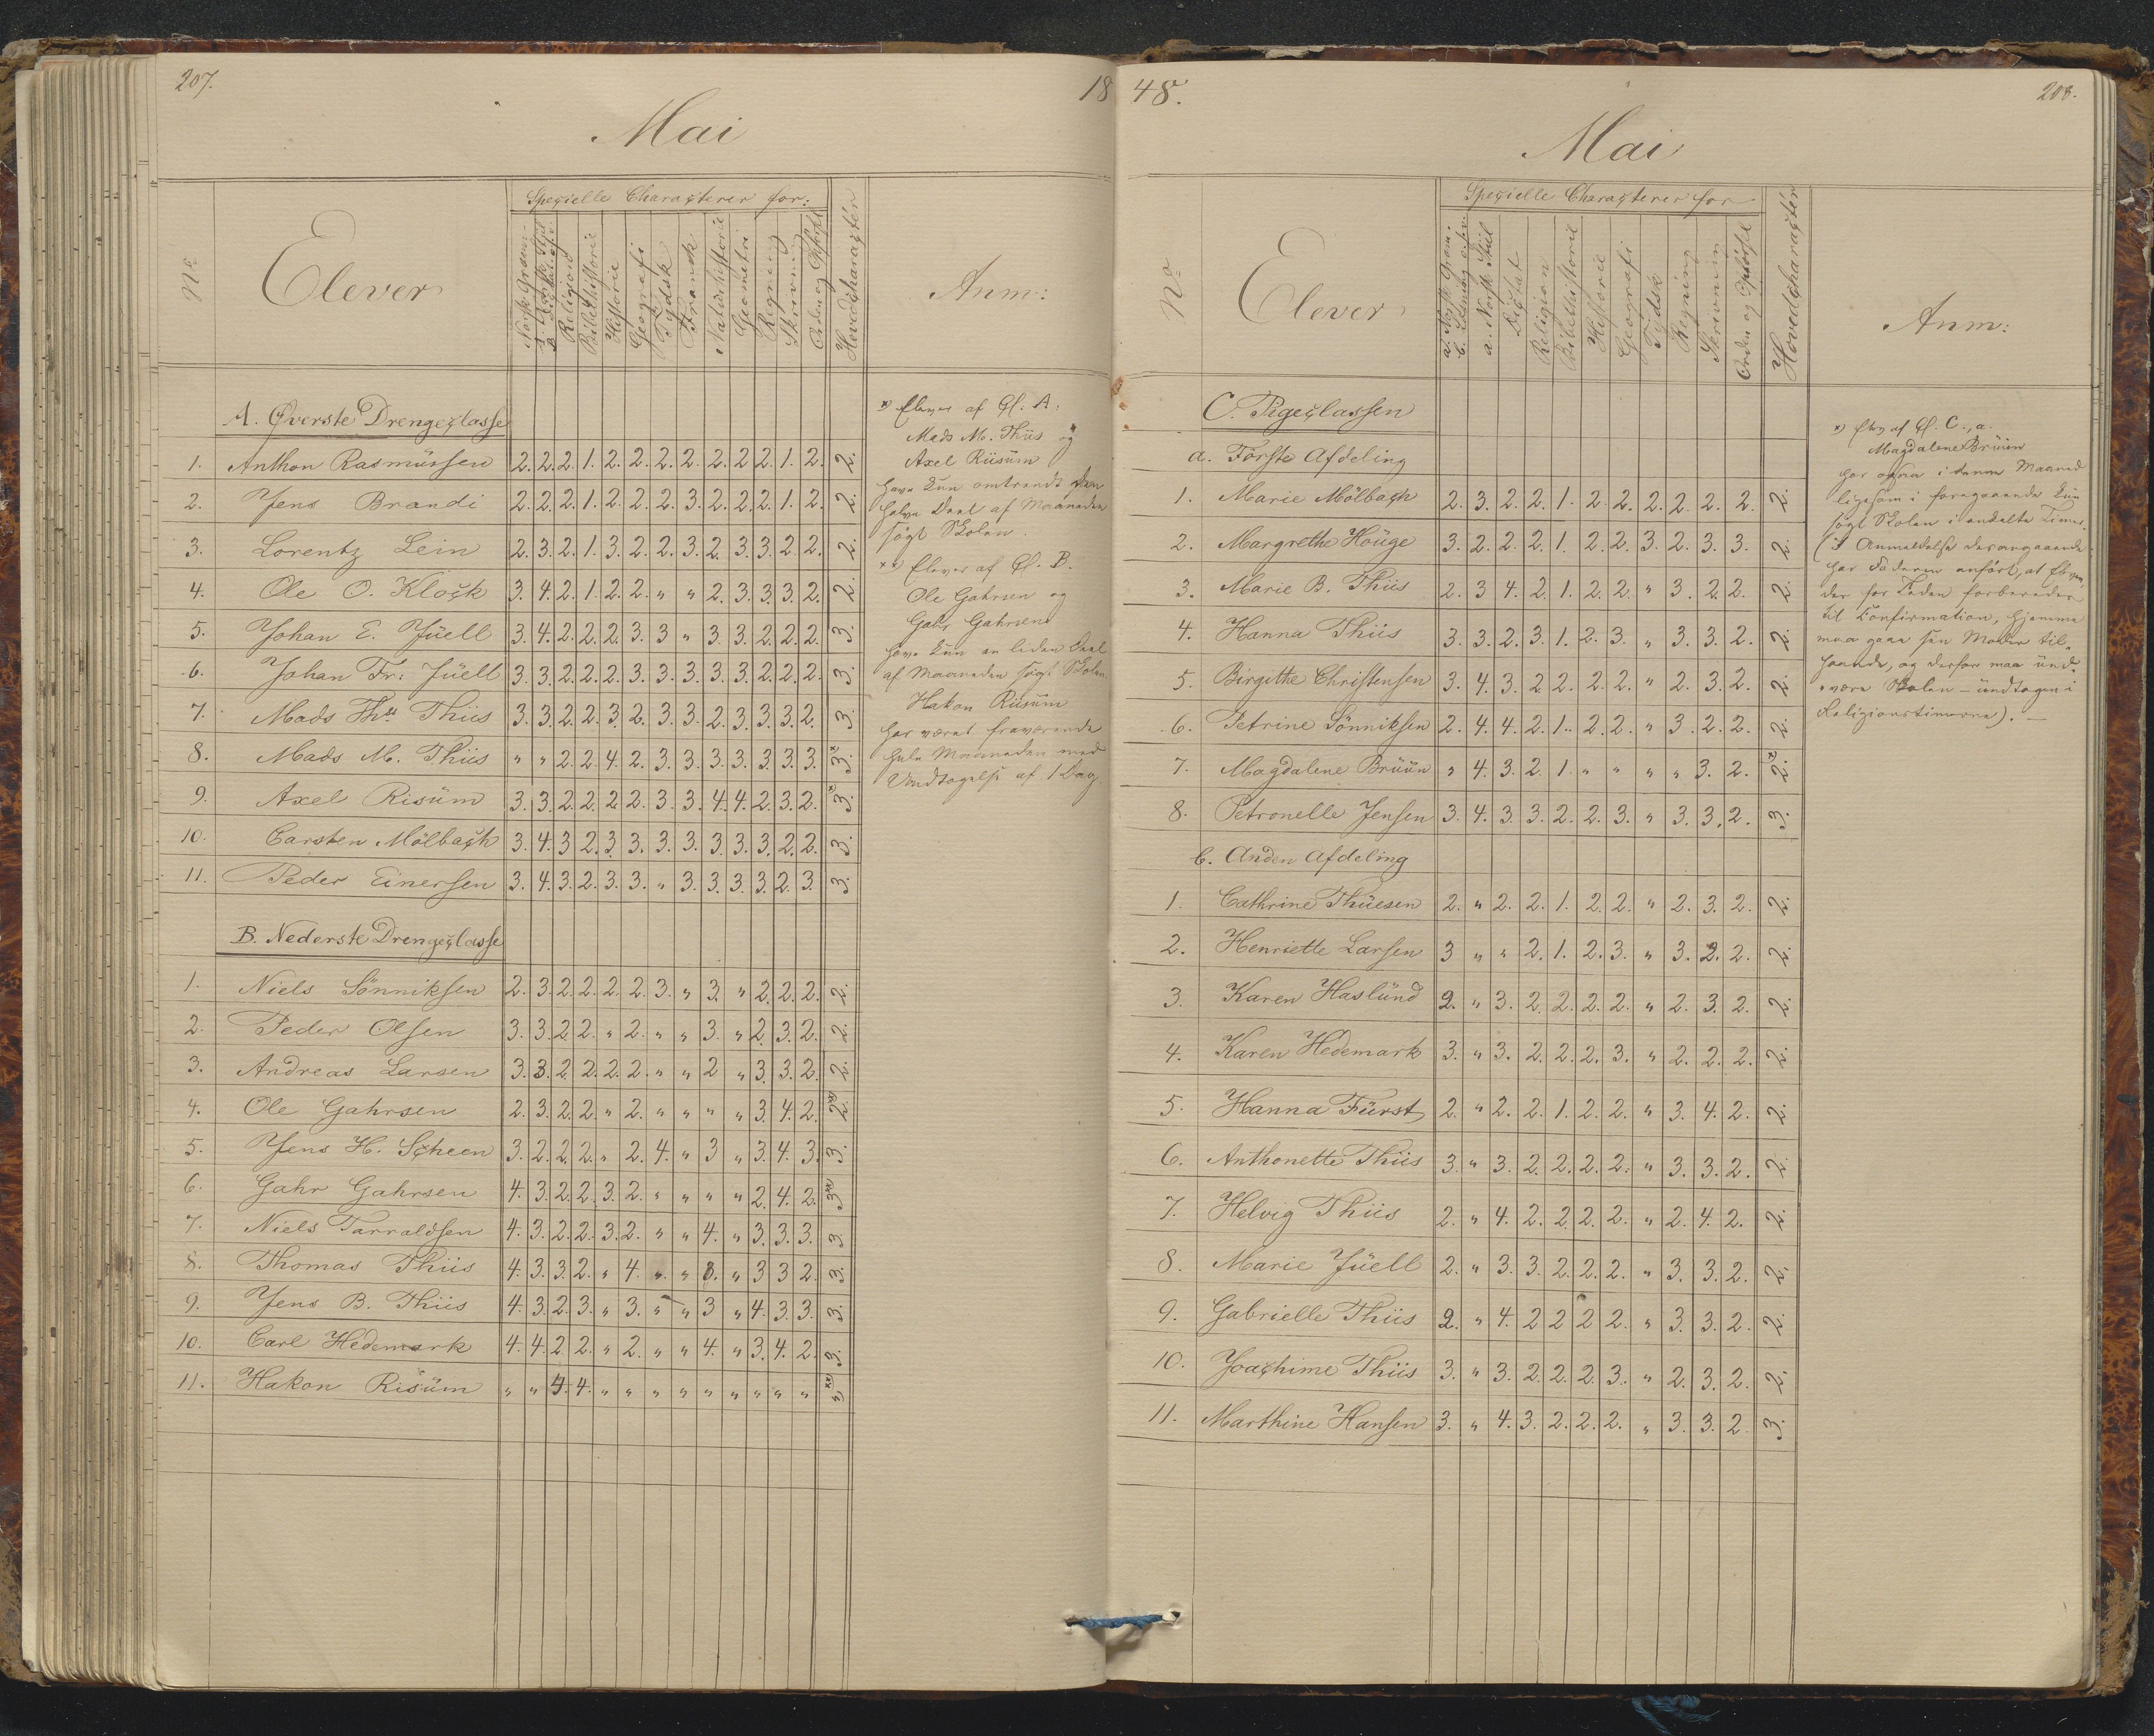 207.
18
Mai
Specielle Characterer for:
No
Elever
Religion
Bibelhistorie
Historie
Geografi
Tydsk
Fransk
Naturhistorie
Geometri
Regning
Skrivning
Orden og Opførsel
Hovedcharacter
Anm:
A. Øverste Drengeclasse
1. Anthon Rasmüssen 2. 2. 2. 1. 2. 2. 2. 2. 2. 2. 2. 1. 2. 2.
2. Jens Brandi 2. 2. 2. 1. 2. 2. 2. 3. 2. 2. 2. 1. 2. 2.
3. Lorentz Lein 2. 3. 2. 1. 3. 2. 2. 3. 2. 3. 3. 2. 2. 2.
4. Ole O. Klock 3. 4. 2. 1. 2. 2. " " 2. 3. 3. 3. 2. 2.
5. Johan E. Jüell 3. 4. 2. 2. 2. 3. 3 " 3. 3. 2. 2. 2. 3.
6. Johan Fr: Jüell 3. 3. 2. 2. 2. 3. 3. 3. 3. 3. 2. 2. 2. 3.
7. Mads Ths Thiis 3. 3. 2. 2. 3. 2. 3. 3. 2. 3. 3. 3. 2. 3.
8. Mads M. Thiis " " 2. 2. 4. 2. 3. 3. 3. 3. 3. 3. 3. 3.*
9. Axel Risüm 3. 3. 2. 2. 2. 2. 3. 3. 4. 4. 2. 3. 2. 3.*
10. Carsten Mölbach 3. 4. 3 2. 3. 3. 3. 3. 3. 3. 3. 2. 2. 3.
11. Peder Einersen 3. 4. 3. 2. 3. 3. " 3. 3. 3. 3. 2. 3. 3.
B. Nederste Drengeclasse
1. Niels Sönniksen 2. 3. 2. 2. 2. 2. 3. " 3. " 2. 2. 2. 2.
2. Peder Olsen 3. 3. 2. 2. " 2. " " 3. " 2. 3. 2. 2.
3. Andreas Larsen 3. 3. 2. 2. 2. 2. " " 2 " 3. 3. 2. 2.
4. Ole Gahrsen 2. 3. 2. 2. " 2. " " " " 3. 4. 2. 2.**
5. Jens H. Scheen 3. 2. 2. 2. " 2. 4. " 3 " 3. 4. 3. 3.
6. Gahr Gahrsen 4. 3. 2. 2. 3. 2. " " " " 2. 4. 2. 3.**
7. Niels Tarraldsen 4. 3. 2. 2. 3. 2. " " 4. " 3. 3. 3. 3.
8. Thomas Thiis 4. 3. 3. 2. " 4. " " 3. " 3 3 2. 3.
9. Jens B. Thiis 4. 3. 2. 3. " 3. " " 3 " 4. 3. 3. 3.
10. Carl Hedemark 4. 4. 2. 2. " 2. " " 4. " 3. 4. 2. 3.
11. Hakon Risüm " " 4. 4. " " " " " " " " " "**
*) Elever af Cl. A:
Mads M. Thiis og
Axel Riisüm
have kun omtrendt den
halve Deel af Maaneden
søgt Skolen.
**) Elever af Cl. B.
Ole Gahrsen og
Gahr Gahrsen
have kun en liden Deel
af Maaneden søgt Skolen.
Hakon Riisüm
har været fraværende
hele Maaneden med
Undtagelse af 1 Dag.
48.
208.
Mai
Specielle Characterer for
No
Elever
a. Norsk Gram.
a. Norsk Stiil
Dictat
Religion
Bibelhistorie
Historie
Geografi
Tydsk
Regning
Skrivning
Orden og Opførsel
Hovedcharacter
Anm:
C. Pigeclassen
a. Förste Afdeling
1. Marie Mölbach 2. 3. 2. 2. 1. 2. 2. 2. 2. 2. 2. 2.
2. Margrethe Houge 3. 2. 2. 2. 1. 2. 2. 3. 2. 3. 3. 2.
3. Marie B. Thiis 2. 3 4. 2. 1. 2. 2. " 3. 2. 2. 2.
4. Hanna Thiis 3. 3. 2. 3. 1. 2. 3. " 3. 3. 2. 2.
5. Birgithe Christensen 3. 4. 3. 2 2. 2. 2. " 2. 3. 2. 2.
6. Petrine Sönniksen 2. 4. 4. 2. 1. 2. 2. " 3. 2. 2. 2.
7. Magdalene Brüün " 4. 3. 2. 1. " " " " 3. 2. 2.*
8. Petronelle Jensen 3. 4. 3. 3. 2. 2. 3. " 3. 3. 2. 3.
b. Anden Afdeling
1. Cathrine Thüesen 2. " 2. 2. 1. 2. 2. " 2. 3. 2. 2.
2. Henriette Larsen 3 " " 2. 1. 2. 3. " 3. 2. 2. 2.
3. Karen Haslünd 2. " 3. 2. 2. 2. 2. " 2. 3. 2. 2.
4. Karen Hedemark 3. " 3. 2. 2. 2. 3. " 2. 2. 2. 2.
5. Hanna Fürst 2. " 2. 2. 1. 2. 2. " 3. 4. 2. 2.
6. Anthonette Thiis 3. " 3. 2. 2. 2. 2. " 3. 3. 2. 2.
7. Helvig Thiis 2. " 4. 2. 2. 2. 2. " 2. 4. 2. 2.
8. Marie Jüell 2. " 3. 3. 2. 2. 2. " 3. 3. 2. 2.
9. Gabrielle Thiis 2. " 4. 2 2 2 2. " 3. 3. 2. 2.
10. Joachime Thiis 3. " 3. 2. 2. 2. 3. " 2. 3. 2. 2.
11. Marthine Hansen 3. " 4. 3. 2. 2. 2. " 3. 3. 2 3.
*) Elev af Cl. C., a.
Magdalene Brüün
har ogsaa i denne Maaned
ligesom i foregaaende kun
søgt Skolen i enkelte Timer.
(I Anmeldelse derangaaende
har Faderen anført, at Eleven,
der for Tiden forbereder
til Confirmation, hjemme
maa gaae sin Moder til
haande, og derfor maa und-
være Skolen - undtagen i
Religionstimerne).